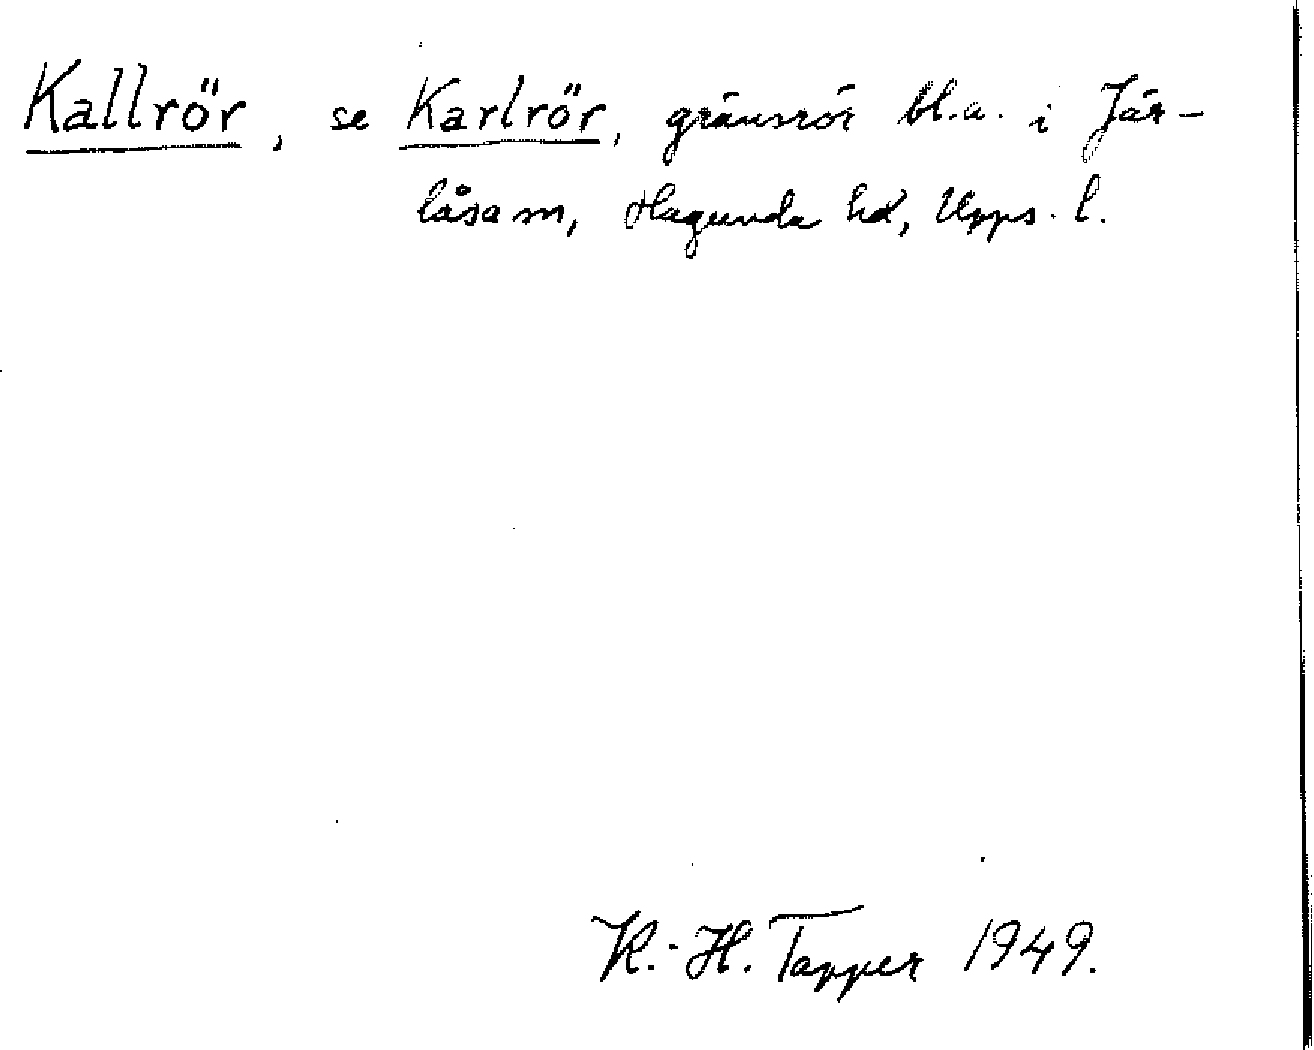 Kallrör, se Karlrör, gränsrör bl.a. i Jär-
låsa sn, Hagunda hd, Upps. l.
K.-H. Tapper 1949.